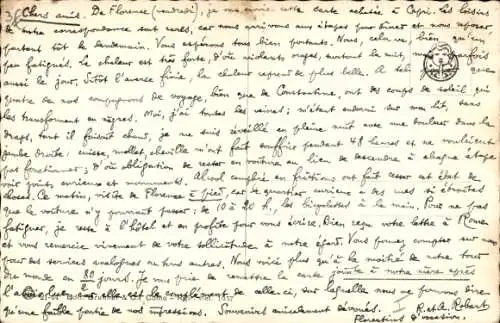 3/ Chers amis. De Florence (vendredi), je vous envoie cette carte achetée à Capri. Les loisirs
de notre correspondance sont rares, car nous arrivons aux étapes pour dîner et nous reposer
partant tôt le lendemain. Nous espérons tous bien portants. Nous, cela va, bien qu'un
peu fatigués. La chaleur est très forte, d'où violents orages, surtout la nuit, mais parfois
aussi le jour. Sitôt l'averse finie, la chaleur reprend de plus belle. A tel
quatre de nos compagnons de voyage, bien que de Constantine, ont des coups de soleil qui
les transforment en nègres. Moi, j'ai toutes les veines ; m'étant endormi sur mon lit, sans
draps, tant il faisait chaud, je me suis réveillé en pleine nuit avec une douleur dans la
jambe droite : cuisse, mollet, cheville m'ont fait souffrir pendant 48 heures et ne voulaient
pas fonctionner ; d'où obligation de rester en voiture au lieu de descendre à chaque étape
voir points curieux et monuments. Alcool camphré en frictions ont fait cesser cet état de
choses. Ce matin, visite de Florence à pied, car ce quartier curieux a des rues si étroites
que la voiture n'y pourrait passer ; de 10 à 20 h., les bicyclettes à la main. Pour ne pas
fatiguer, je reste à l'hôtel et en profite pour vous écrire. Bien reçu votre lettre à Rome
et vous remercie vivement de votre sollicitude à notre égard. Vous pouvez compter sur nous
pour des services analogues ou tous autres. Nous voici plus qu'à la moitié de notre tour
du monde en 80 jours. Je vous prie de remettre la carte jointe à notre nièce après
l'avoir lue ; elle est le complément de celle-ci, sur laquelle nous ne pouvons dire
qu'une faible partie de nos impressions. Souvenirs amicalement dévoués. R. et A. Robert
Florentins d'occasion.